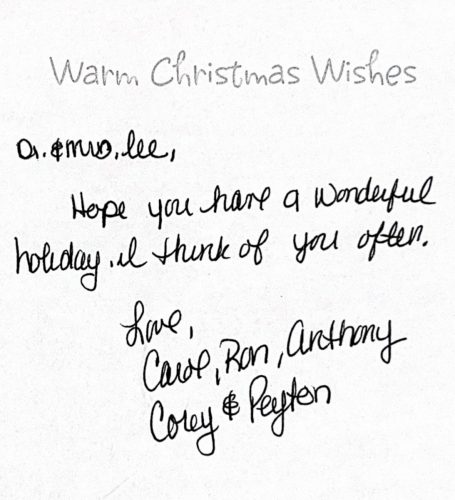 Warm Christmas Wishes
Dr. & Mrs. Lee,
Hope you have a wonderful
holiday. I think of you often.
Love,
Carol, Ron, Anthony
Corey & Peyton